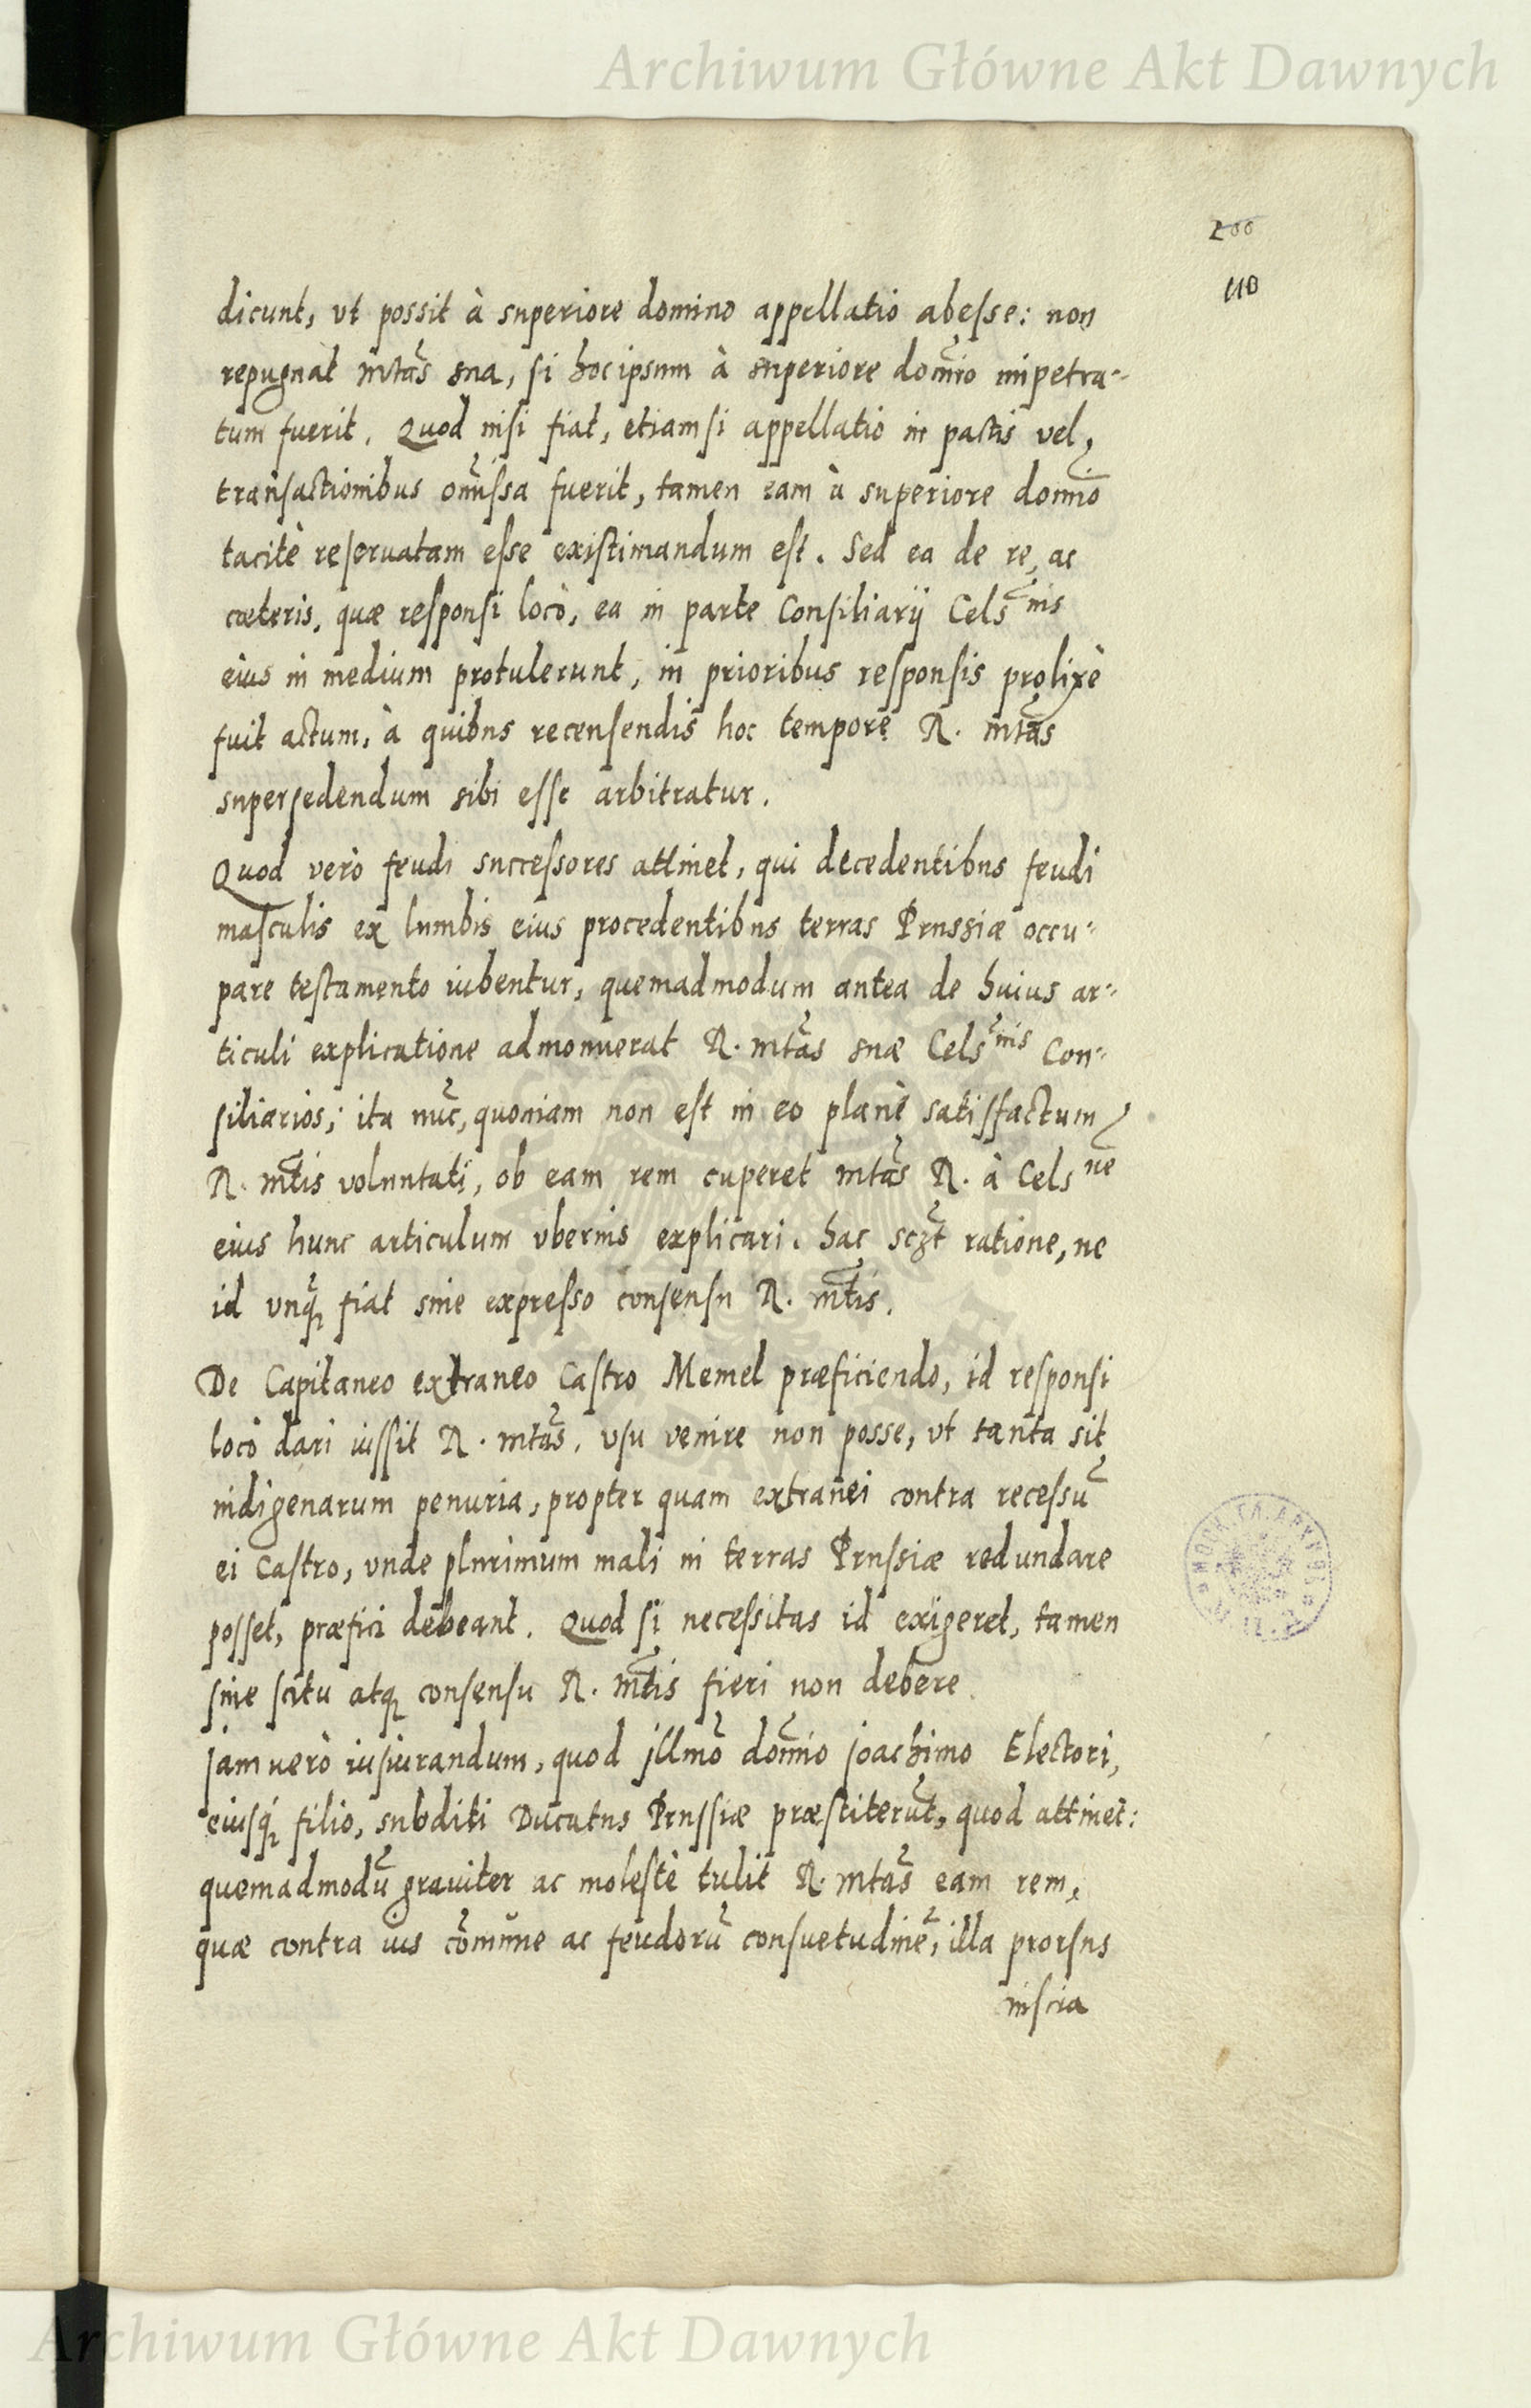 Archiwum Główne Akt Dawnych
200
110
dicunt, vt possit à superiore domino appellatio abesse: non
repugnat mtãs sua, si hoc ipsum à superiore domĩo impetra-
tum fuerit. Quod nisi fiat, etiamsi appellatio in pactis vel
transactionibus omĩssa fuerit, tamen eam à superiore domĩo
tacitè reseruatam esse existimandum est. Sed ea de re, ac
cæteris, quæ responsi locò, ea in parte Consiliarij Cels^nis
eius in medium protulerunt, in prioribus responsis prolixè
fuit actum, à quibus recensendis hoc tempore R. mtãs
supersedendum sibi esse arbitratur.
Quod verò feudi successores attinet, qui decedentibus feudi
masculis ex lumbis eius procedentibus terras Prussiæ occu-
pare testamento iubentur, quemadmodum antea de huius ar-
ticuli explicatione admonuerat R. mtãs suæ Cels^nis Con-
siliarios; ita nũc, quoniam non est in eo planè satisfactum
R. mtĩs voluntati, ob eam rem cuperet mtãs R. à Cels^ne
eius hunc articulum vberius explicari. hac sczt̃ ratione, ne
id vnq̃ fiat sine expresso consensu R. mtĩs.
De Capitaneo extraneo Castro Memel præficiendo, id responsi
locò dari iussit R. mtãs, vsu venire non posse, vt tanta sit
indigenarum penuria, propter quam extranei contra recessũ
ei Castro, vnde plurimum mali in terras Prussiæ redundare
posset, præfici debeant. Quod si necessitas id exigeret, tamen
sine scitu atq; consensu R. mtĩs fieri non debere.
Jam uerò iusiurandum, quod jllmõ domĩo joachimo Electori,
eiusq; filio, subditi Ducatus Prussiæ præstiterũt, quod attinet:
quemadmodũ grauiter ac molestè tulit R. mtãs eam rem,
quæ contra ius cõmune ac feudorũ consuetudinẽ, illa prorsus
inscia
Archiwum Główne Akt Dawnych